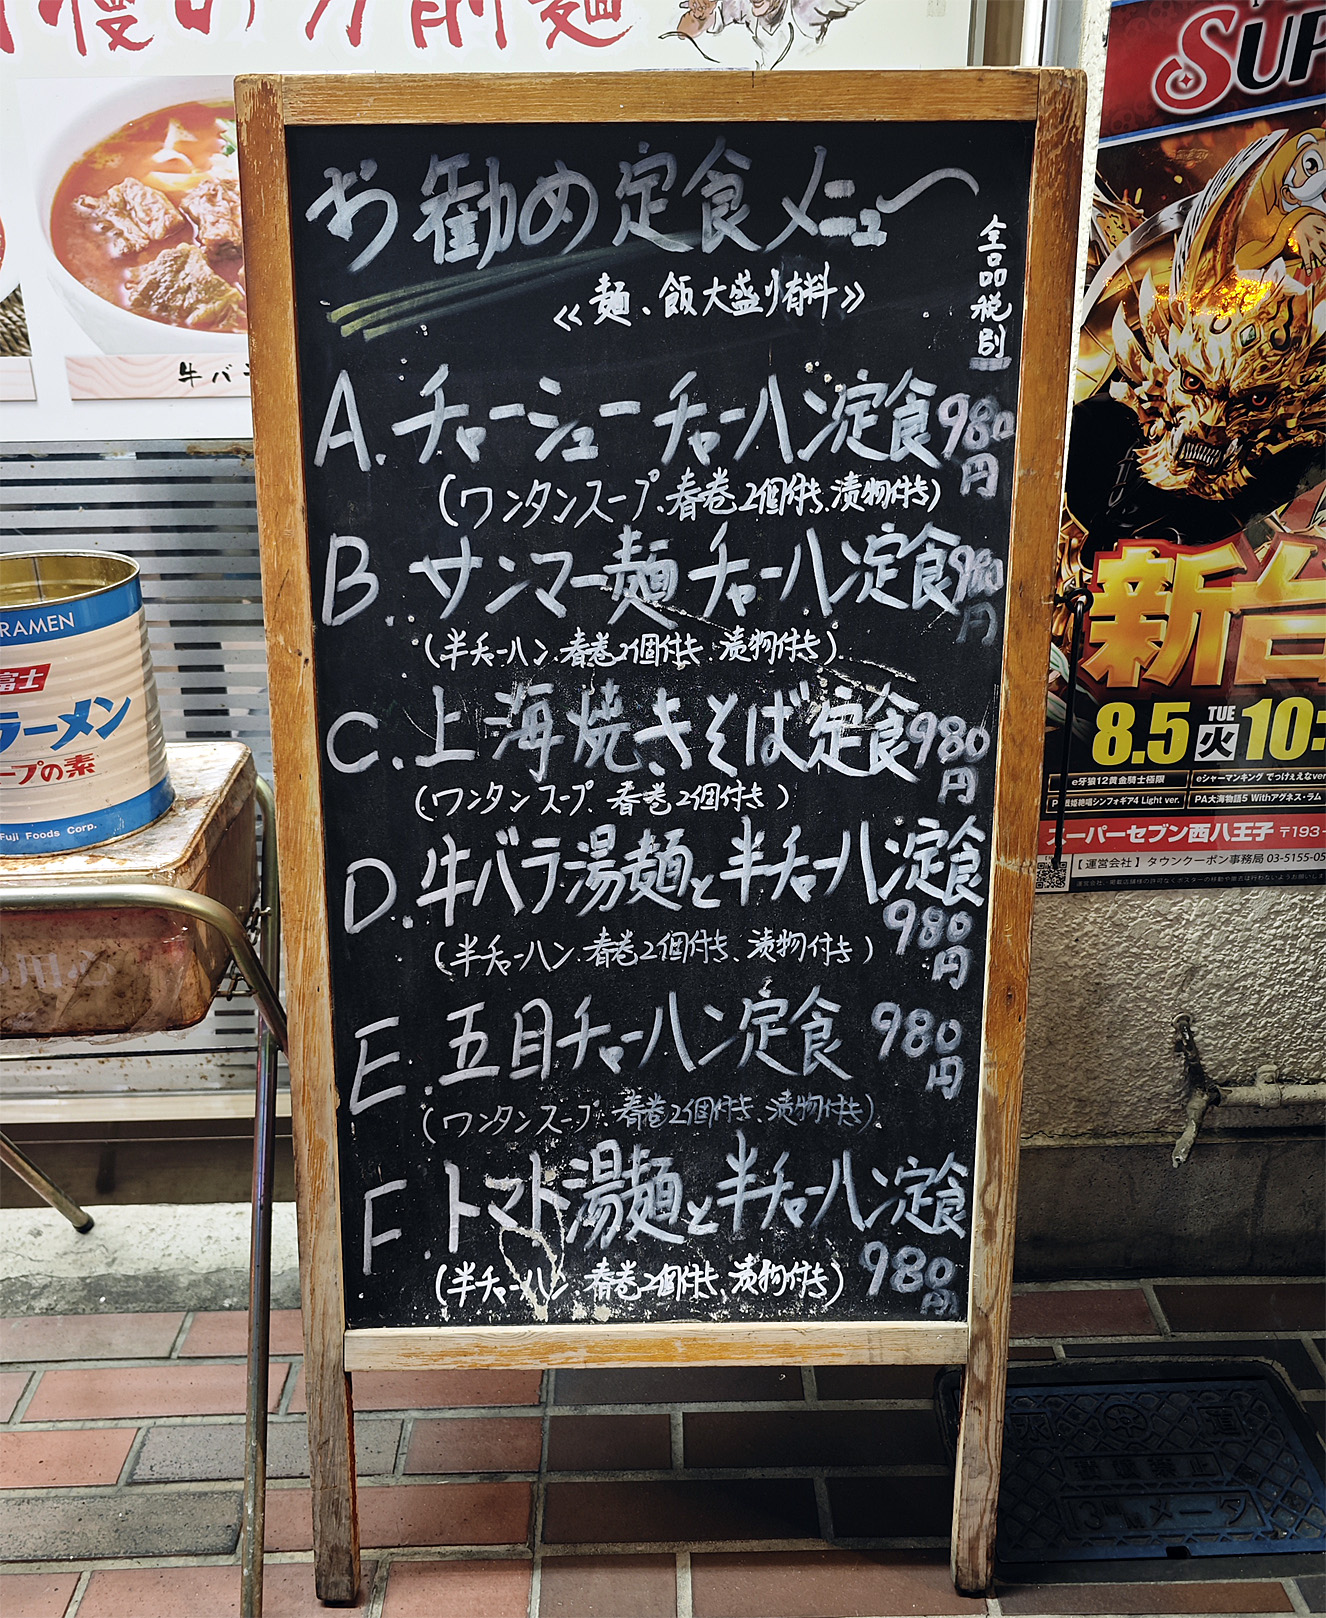 お勧め定食メニュー
≪麺、飯大盛り有料≫
全品税別
A.チャーシューチャーハン定食980円
(ワンタンスープ、春巻2個付き、漬物付き)
B.サンマー麺チャーハン定食980円
(半チャーハン、春巻2個付き、漬物付き)
C.上海焼きそば定食980円
(ワンタンスープ、春巻2個付き)
D.牛バラ湯麺と半チャーハン定食
980円
(半チャーハン、春巻2個付き、漬物付き)
E.五目チャーハン定食 980円
(ワンタンスープ、春巻2個付き、漬物付き)
F.トマト湯麺と半チャーハン定食
980円
(半チャーハン、春巻2個付き、漬物付き)
刀削麺
牛バ
RAMEN
富士
ラーメン
ープの素
Fuji Foods Corp.
SUP
新台
8.5 TUE 火 10:
e牙狼12黄金騎士極限
eシャーマンキング でっけぇえなver
戦姫絶唱シンフォギア4 Light ver.
PA大海物語5 Withアグネス・ラム
スーパーセブン西八王子 〒193-
【運営会社】タウンクーポン事務局 03-5155-05
13mmメータ